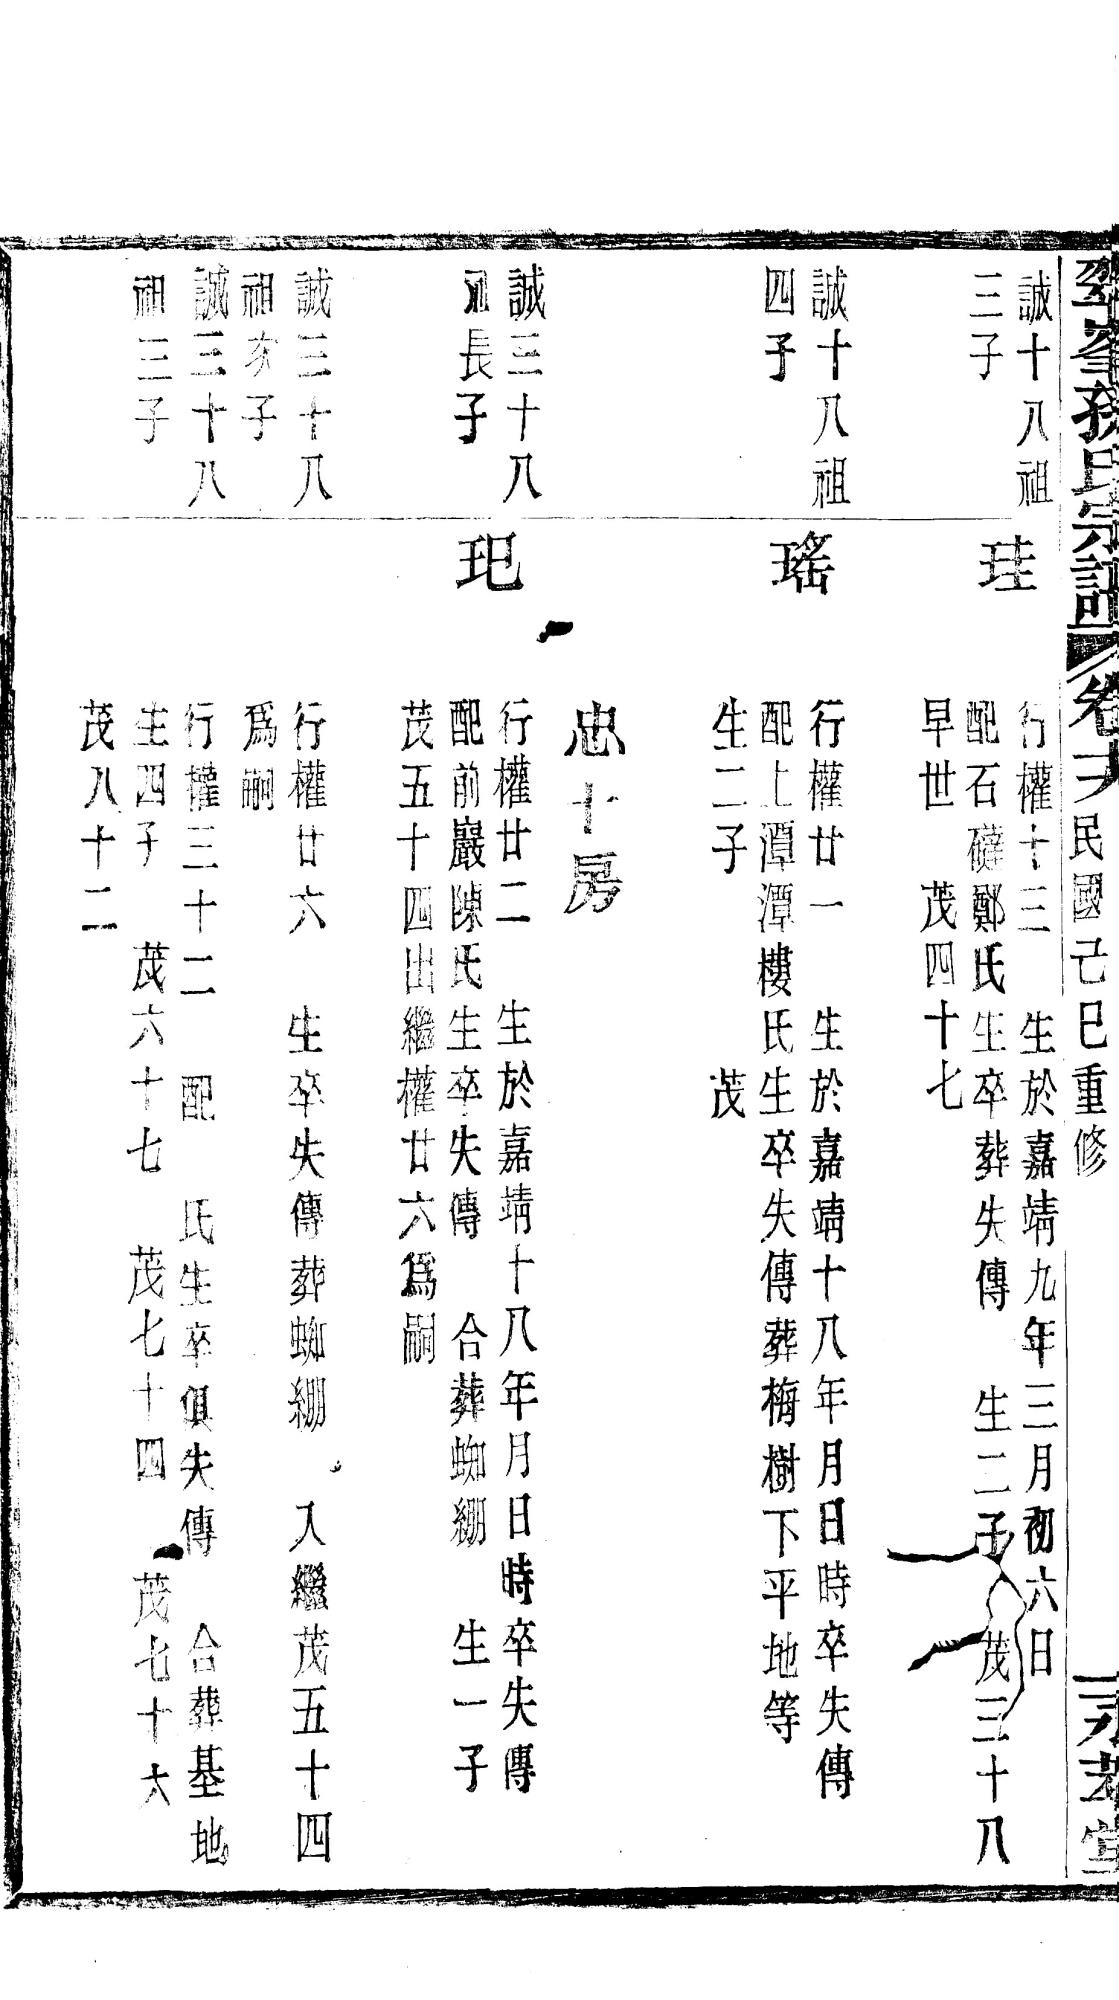 孫氏宗譜
民國己巳重修
誠十八祖
三子
珪
行權十三 生於嘉靖九年三月初六日
配石䃮鄭氏生卒葬失傳 生二子 茂三十八
早世 茂四十七
誠十八祖
四子
瑤
行權廿一 生於嘉靖十八年月日時卒失傳
配上潭潭樓氏生卒失傳葬梅樹下平地等
生二子 茂
忠十房
誠三十八
祖長子
玘
行權廿二 生於嘉靖十八年月日時卒失傳
配前巖陳氏生卒失傳 合葬蜘綳 生一子
茂五十四出繼權廿六為嗣
誠三十八
祖次子
行權廿六 生卒失傳葬蜘綳 入繼茂五十四
為嗣
誠三十八
祖三子
行權三十二 配 氏生卒俱失傳 合葬基地
生四子 茂六十七 茂七十四 茂七十六
茂八十二